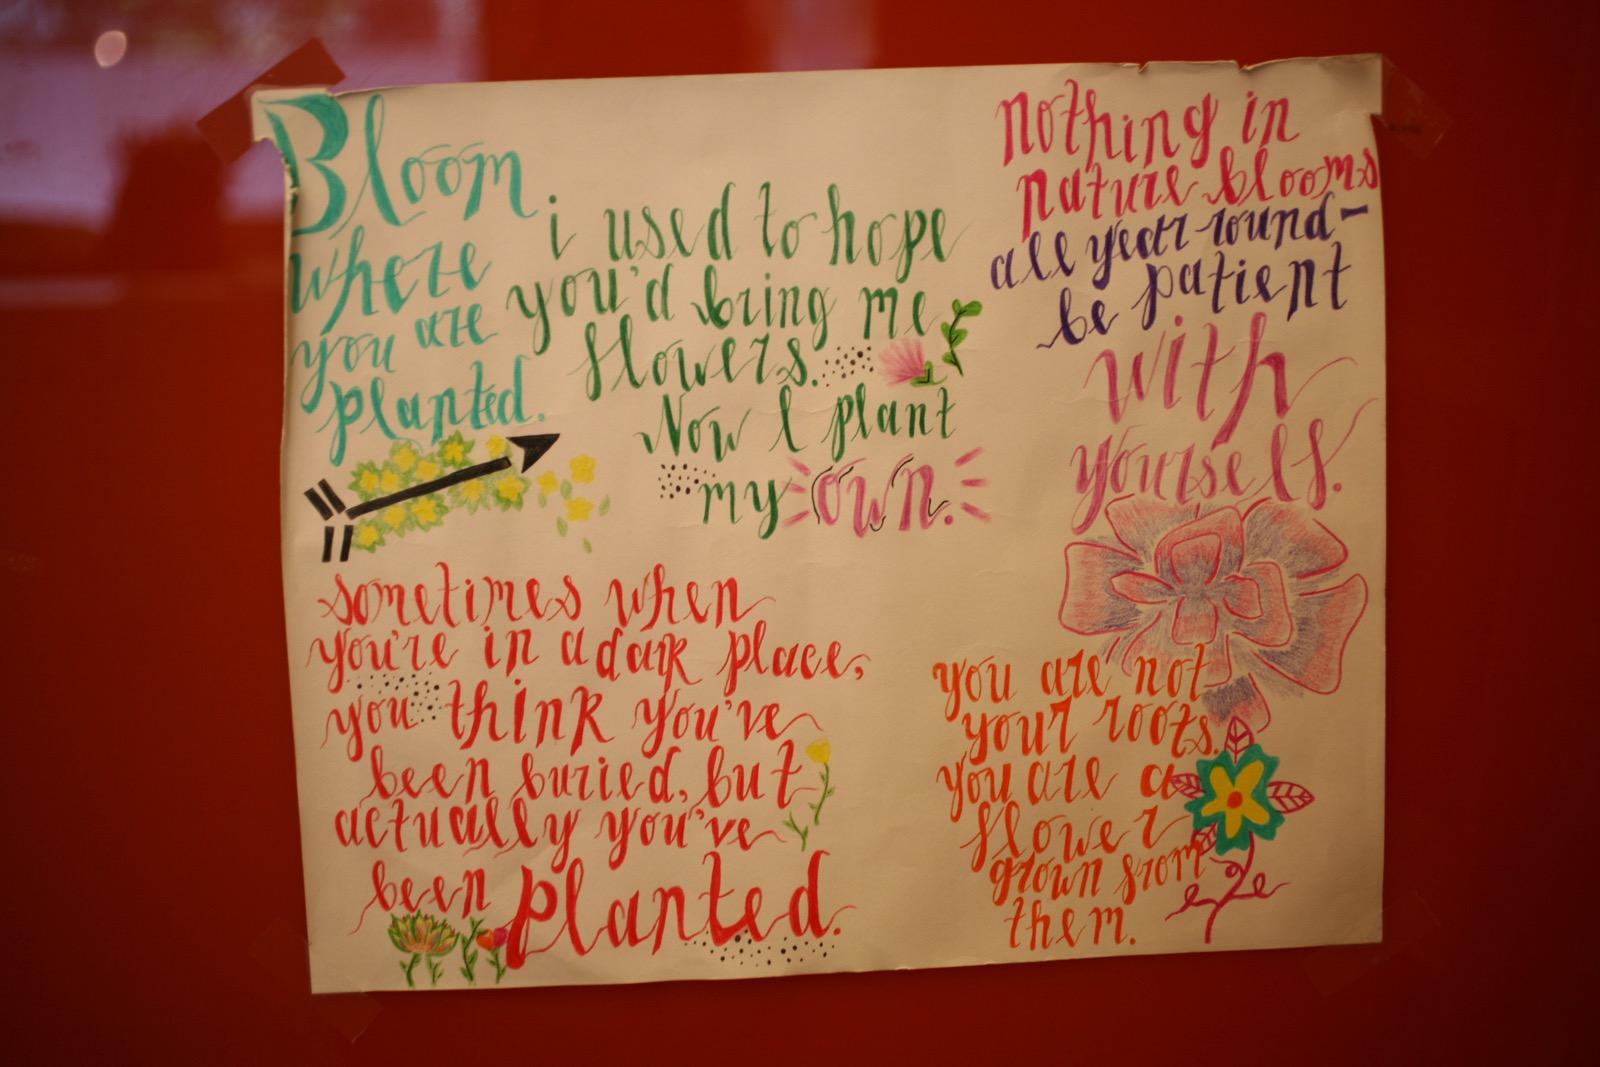 Bloom
where
you are
planted.
i used to hope
you'd bring me
flowers.
Now I plant
my own.
nothing in
nature blooms
all year round-
be patient
with
yourself.
sometimes when
you're in a dark place,
you think you've
been buried, but
actually you've
been planted.
you are not
your roots.
you are a
flower
grown from
them.